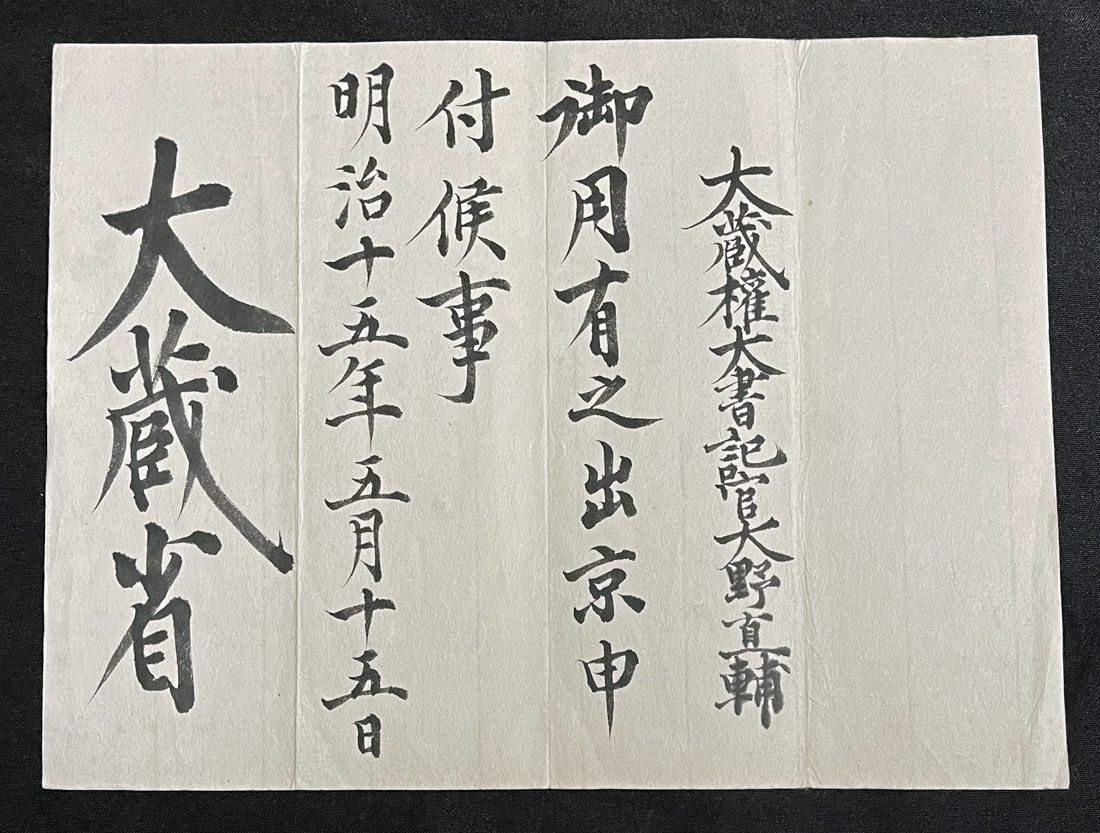 大蔵権大書記官大野直輔
御用有之出京申
付候事
明治十五年五月十五日
大蔵省